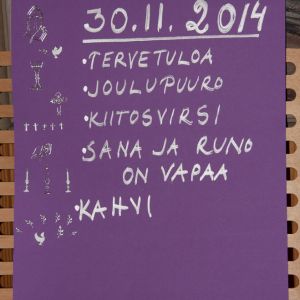 30.11.2014
• TERVETULOA
• JOULUPUURO
• KIITOSVIRSI
• SANA JA RUNO
ON VAPAA
• KAHVI